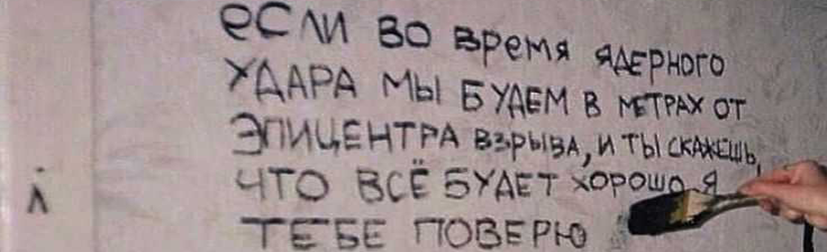 если во время ядерного
удара мы будем в метрах от
эпицентра взрыва, и ты скажешь,
что всё будет хорошо я
тебе поверю